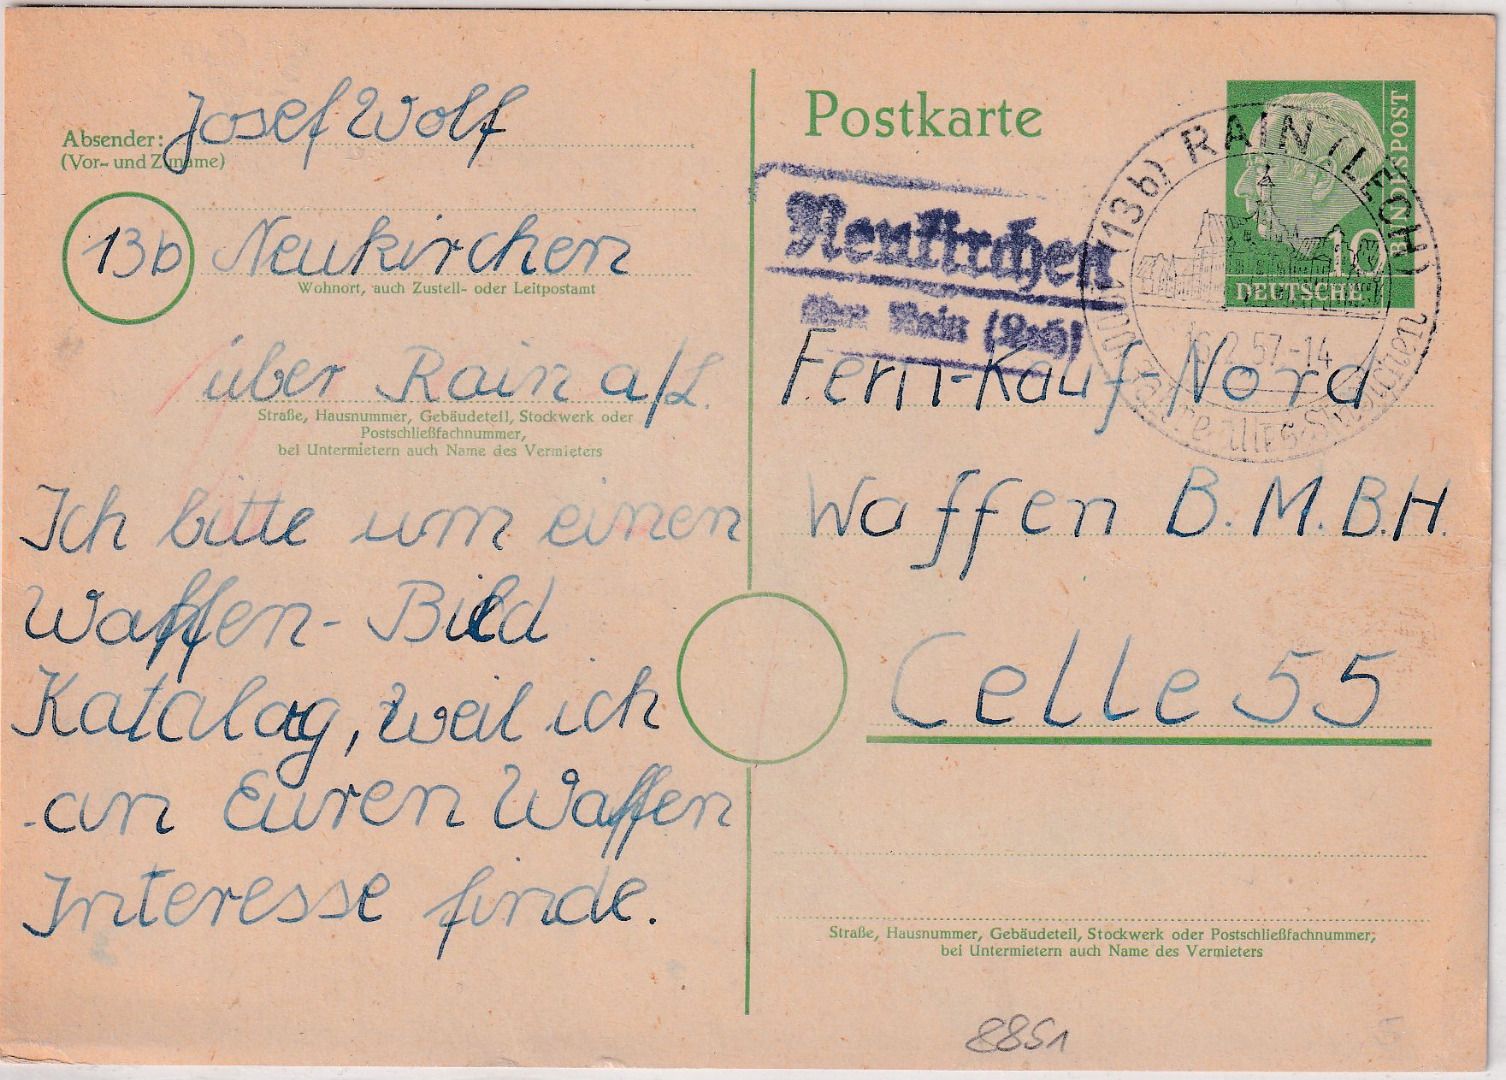 Absender:
(Vor- und Zuname)
Josef Wolf
13b Neukirchen
Wohnort, auch Zustell- oder Leitpostamt
über Rain a/L.
Straße, Hausnummer, Gebäudeteil, Stockwerk oder
Postschließfachnummer,
bei Untermietern auch Name des Vermieters
Ich bitte um einen
Waffen-Bild
Katalog, weil ich
an Euren Waffen
Interesse finde.
Postkarte
Neukirchen
über Rain (Lech)
(13b) RAIN (LECH)
57-14
700 Jahre altes Städtchen
BUNDESPOST
10
DEUTSCHE
Fern-Kauf-Nord
Waffen B.M.B.H.
Celle 55
Straße, Hausnummer, Gebäudeteil, Stockwerk oder Postschließfachnummer,
bei Untermietern auch Name des Vermieters
8851